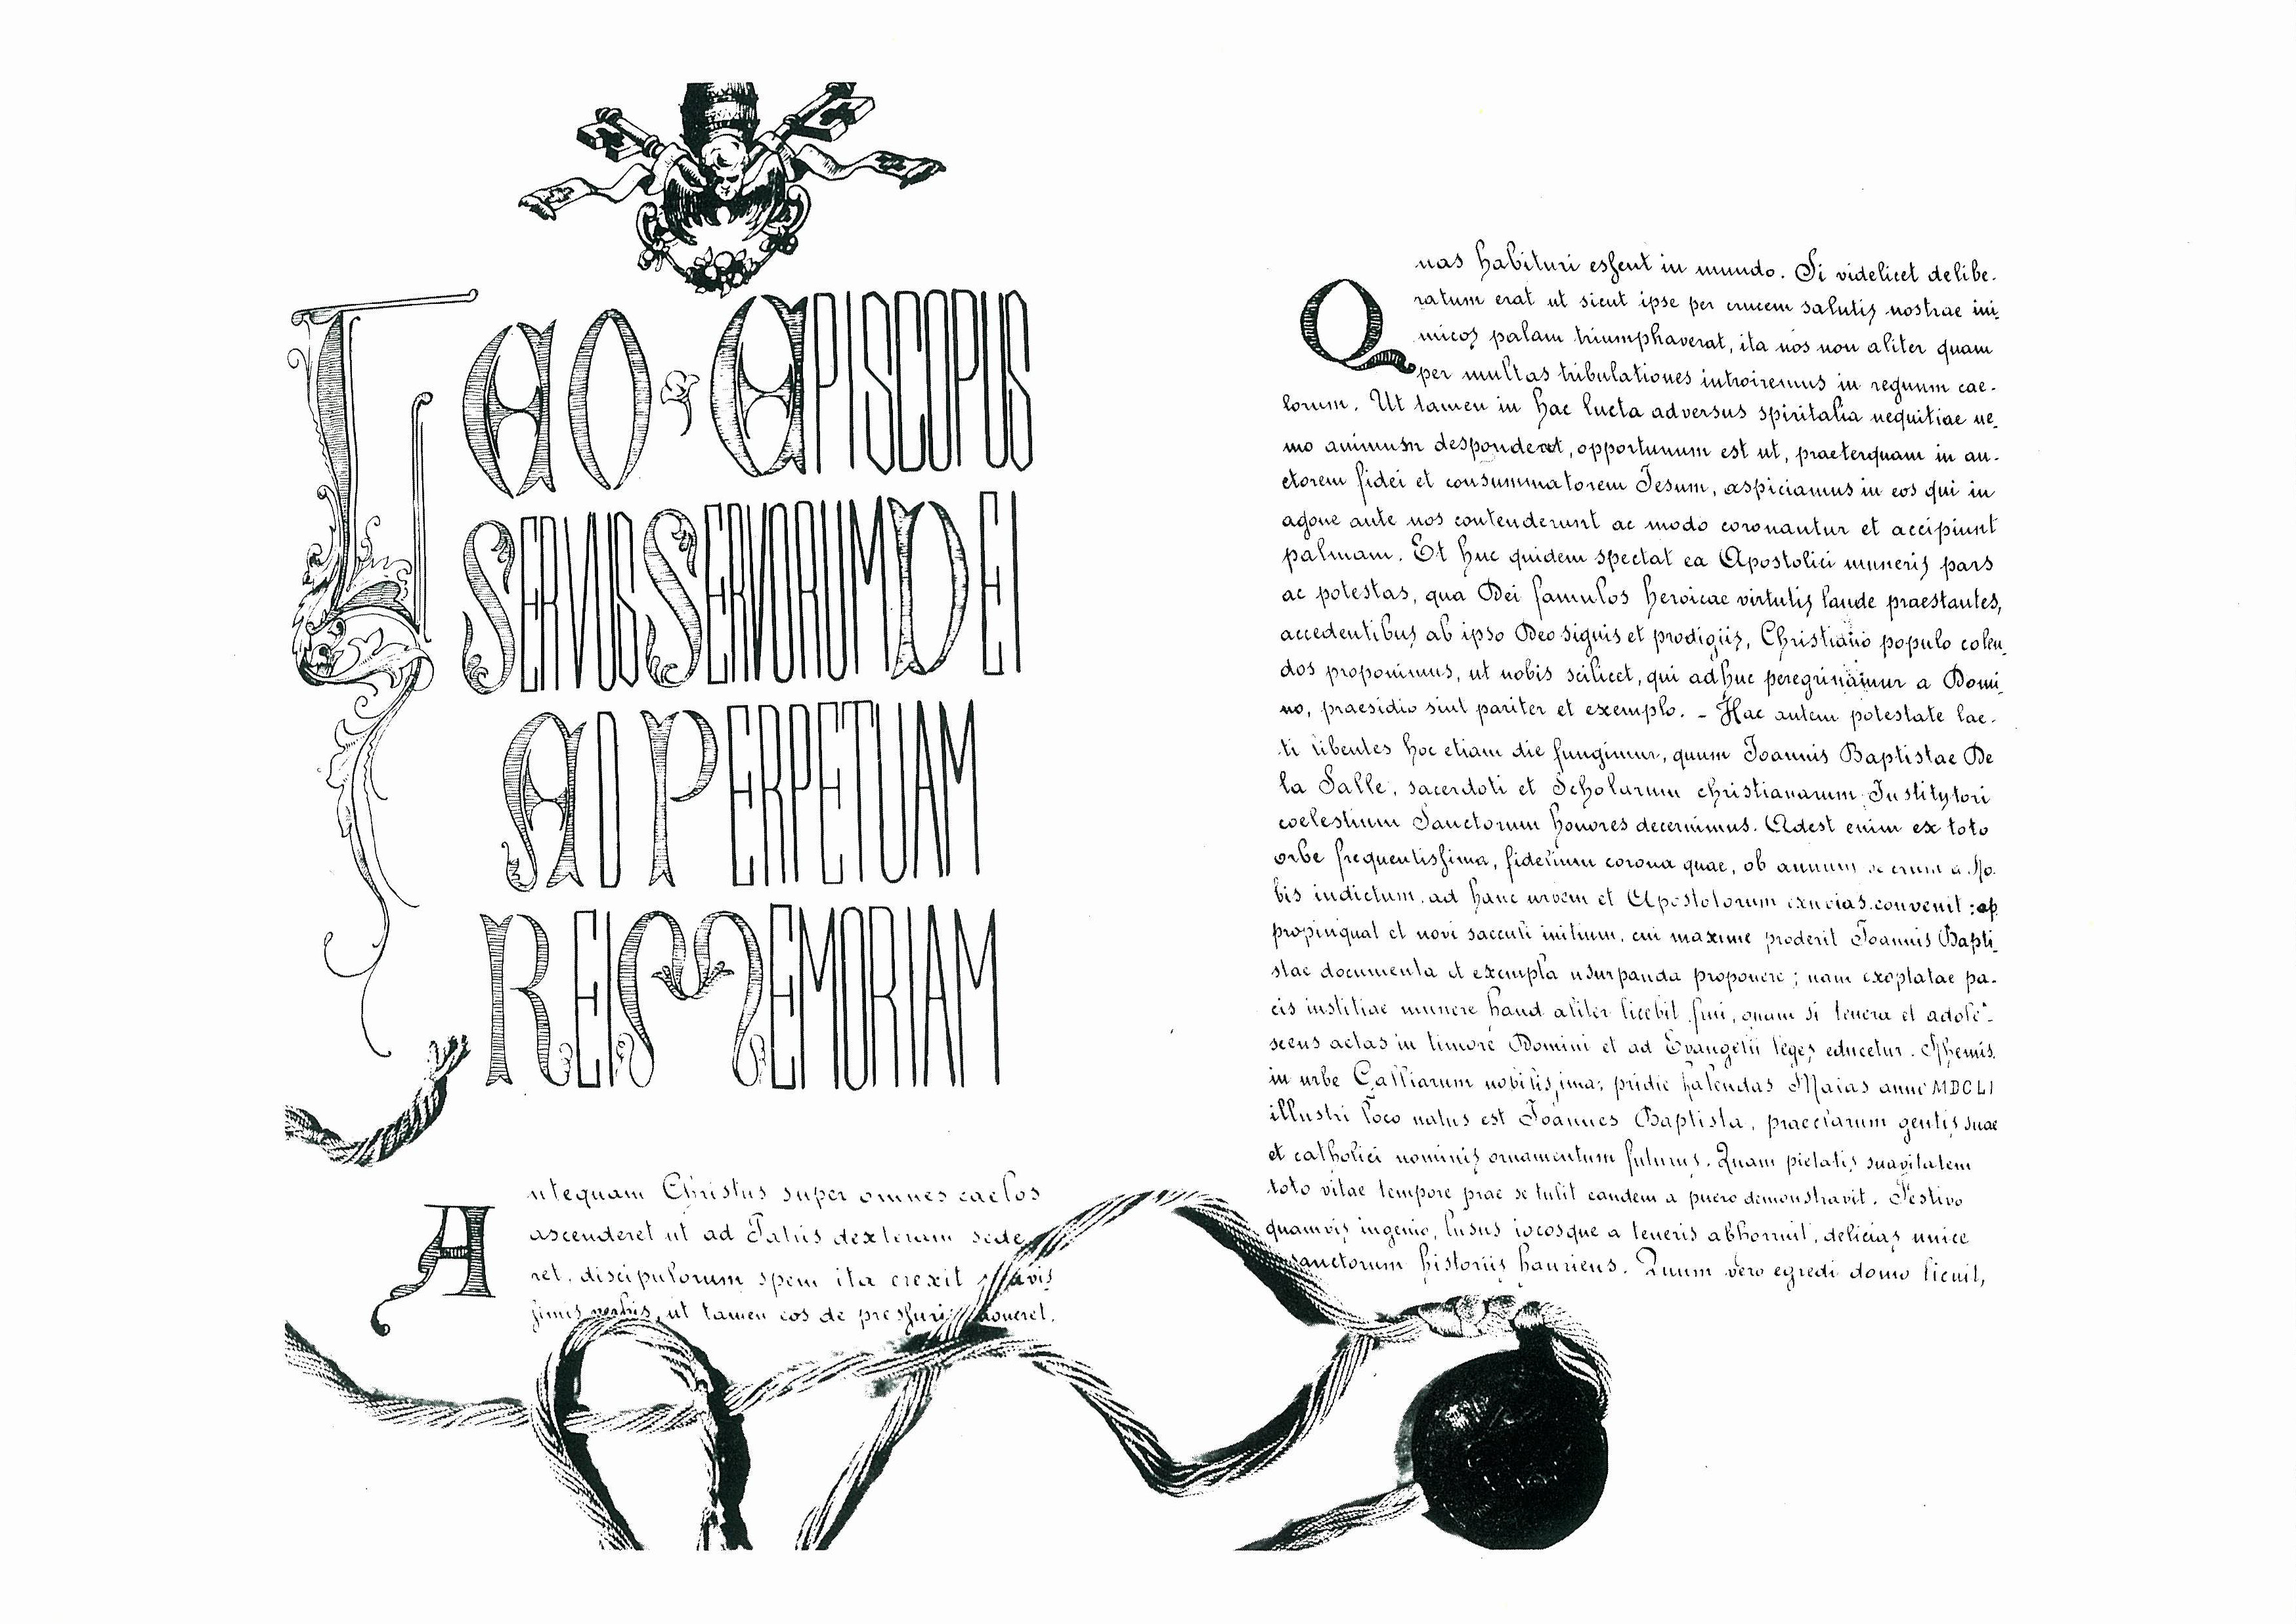 LEO EPISCOPUS
SERVUS SERVORUM DEI
AD PERPETUAM
REI MEMORIAM
Antequam Christus super omnes caelos
ascenderet ut ad Patris dexteram sede
ret, discipulorum spem ita erexit
simis verbis, ut tamen eos de pressuris moneret,
Quas habituri essent in mundo. Si videlicet delibe-
ratum erat ut sicut ipse per crucem salutis nostrae ini-
micos palam triumphaverat, ita nos non aliter quam
per multas tribulationes introiremus in regnum cae-
lorum. Ut tamen in hac lucta adversus spiritalia nequitiae ne-
mo animum desponderet, opportunum est ut, praeterquam in au-
ctorem fidei et consummatorem Iesum, aspiciamus in eos qui in
agone ante nos contenderunt ac modo coronantur et accipiunt
palmam. Et huc quidem spectat ea Apostolici muneris pars
ac potestas, qua Dei famulos heroicae virtutis laude praestantes,
accedentibus ab ipso Deo signis et prodigiis, Christiano populo colen-
dos proponimus, ut nobis scilicet, qui adhuc peregrinamur a Domi-
no, praesidio sint pariter et exemplo. - Hac autem potestate lae-
ti libentes hoc etiam die fungimur, quum Ioannis Baptistae De
la Salle, sacerdoti et Scholarum christianarum Institutori
coelestium Sanctorum honores decernimus. Adest enim ex toto
orbe frequentissima, fidelium corona quae, ob annum sacrum a No-
bis indictum, ad hanc urbem et Apostolorum exuvias convenit: ap-
propinquat et novi saeculi initium, cui maxime proderit Ioannis Bapti-
stae documenta et exempla usurpanda proponere; nam exoptatae pa-
cis iustitiae munere haud aliter licebit frui, quam si tenera et adole-
scens aetas in timore Domini et ad Evangelii leges educetur. Rhemis,
in urbe Galliarum nobilissima, pridie kalendas Maias anni MDCLI
illustri loco natus est Ioannes Baptista, praeclarum gentis suae
et catholici nominis ornamentum futurus. Quam pietatis suavitatem
toto vitae tempore prae se tulit eandem a puero demonstravit. Festivo
quamvis ingenio, lusus iocosque a teneris abhorruit, delicias unice
sanctorum historiis hauriens. Quum vero egredi domo licuit,